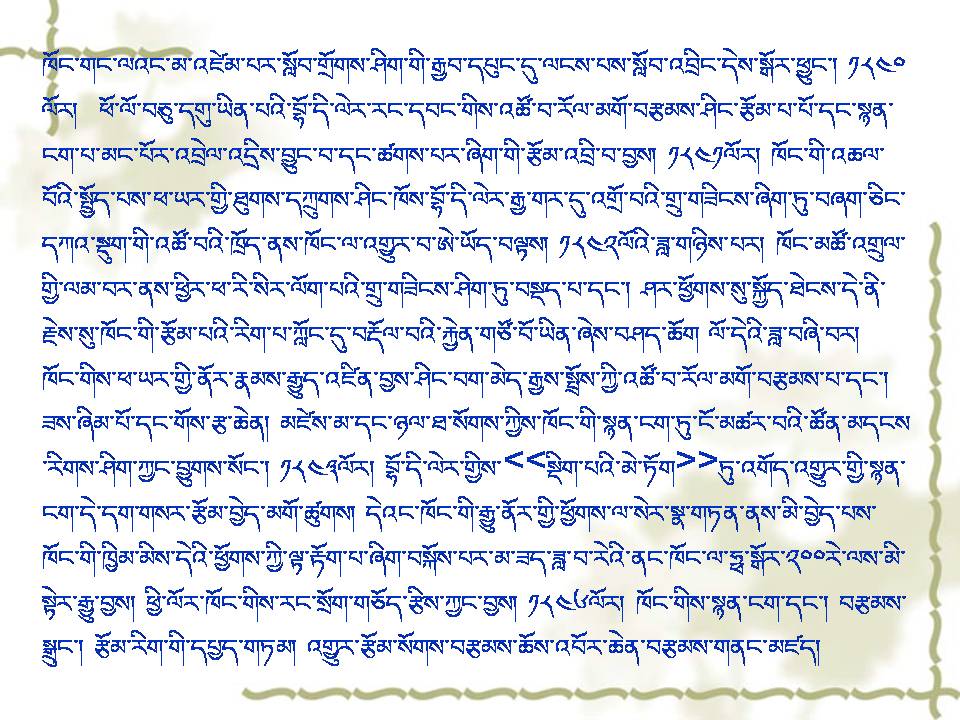 ཁོང་གང་ལའང་མ་འཛེམ་པར་སློབ་གྲོགས་ཤིག་གི་རྒྱབ་དཔུང་དུ་ལངས་པས་སློབ་འབྲིང་དེས་སྒོར་ཕྱུང་། ༡༨༤༠
ལོར། ཕོ་ལོ་བཅུ་དགུ་ཡིན་པའི་བྷོ་དི་ལེར་རང་དབང་གིས་འཚོ་བ་རོལ་མགོ་བརྩམས་ཤིང་རྩོམ་པ་པོ་དང་སྙན་
ངག་པ་མང་པོར་འབྲེལ་འདྲིས་བྱུང་བ་དང་ཚགས་པར་ཞིག་གི་རྩོམ་འབྲི་བ་བྱས། ༡༨༤༡ལོར། ཁོང་གི་འཆལ་
བོའི་སྤྱོད་པས་ཕ་ཡར་གྱི་ཐུགས་དཀྲུགས་ཤིང་ཁོས་བྷོ་དི་ལེར་རྒྱ་གར་དུ་འགྲོ་བའི་གྲུ་གཟིངས་ཞིག་ཏུ་བཞག་ཅིང་
དཀའ་སྡུག་གི་འཚོ་བའི་ཁྲོད་ནས་ཁོང་ལ་འགྱུར་བ་ཨེ་ཡོད་བལྟས། ༡༨༤༢ལོའི་ཟླ་གཉིས་པར། ཁོང་མཚོ་འགྲུལ་
གྱི་ལམ་བར་ནས་ཕྱིར་ཕ་རི་སིར་ལོག་པའི་གྲུ་གཟིངས་ཤིག་ཏུ་བསྡད་པ་དང་། ཤར་ཕྱོགས་སུ་སྐྱོད་ཐེངས་དེ་ནི་
རྗེས་སུ་ཁོང་གི་རྩོམ་པའི་རིག་པ་ཀློང་དུ་བརྡོལ་བའི་རྐྱེན་གཙོ་བོ་ཡིན་ཞེས་བཤད་ཆོག ལོ་དེའི་ཟླ་བཞི་བར།
ཁོང་གིས་ཕ་ཡར་གྱི་ནོར་རྣམས་རྒྱུད་འཛིན་བྱས་ཤིང་བག་མེད་རྒྱས་སྤྲོས་ཀྱི་འཚོ་བ་རོལ་མགོ་བརྩམས་པ་དང་།
ཟས་ཞིམ་པོ་དང་གོས་རྩ་ཆེན། མཛེས་མ་དང་ཉལ་ཐ་སོགས་ཀྱིས་ཁོང་གི་སྙན་ངག་ཏུ་ངོ་མཚར་བའི་ཚོན་མདངས
་རིགས་ཤིག་ཀྱང་བྱུགས་སོང་། ༡༨༤༣ལོར། བྷོ་དི་ལེར་གྱིས་<<སྡིག་པའི་མེ་ཏོག>>ཏུ་འགོད་འགྱུར་གྱི་སྙན་
ངག་དེ་དག་གསར་རྩོམ་བྱེད་མགོ་ཚུགས། དེའང་ཁོང་གི་རྒྱུ་ནོར་གྱི་ཕྱོགས་ལ་སེར་སྣ་གཏན་ནས་མི་བྱེད་པས་
ཁོང་གི་ཁྱིམ་མིས་དེའི་ཕྱོགས་ཀྱི་ལྟ་རྟོག་པ་ཞིག་བསྐོས་པར་མ་ཟད་ཟླ་བ་རེའི་ནང་ཁོང་ལ་ཧྥ་སྒོར་༢༠༠རེ་ལས་མི་
སྟེར་རྒྱུ་བྱས། ཕྱི་ལོར་ཁོང་གིས་རང་སྲོག་གཅོད་རྩིས་ཀྱང་བྱས། ༡༨༤༦ལོར། ཁོང་གིས་སྙན་ངག་དང་། བརྩམས་
སྒྲུང་། རྩོམ་རིག་གི་དཔྱད་གཏམ། འགྱུར་རྩོམ་སོགས་བརྩམས་ཆོས་འབོར་ཆེན་བརྩམས་གནང་མཛད།